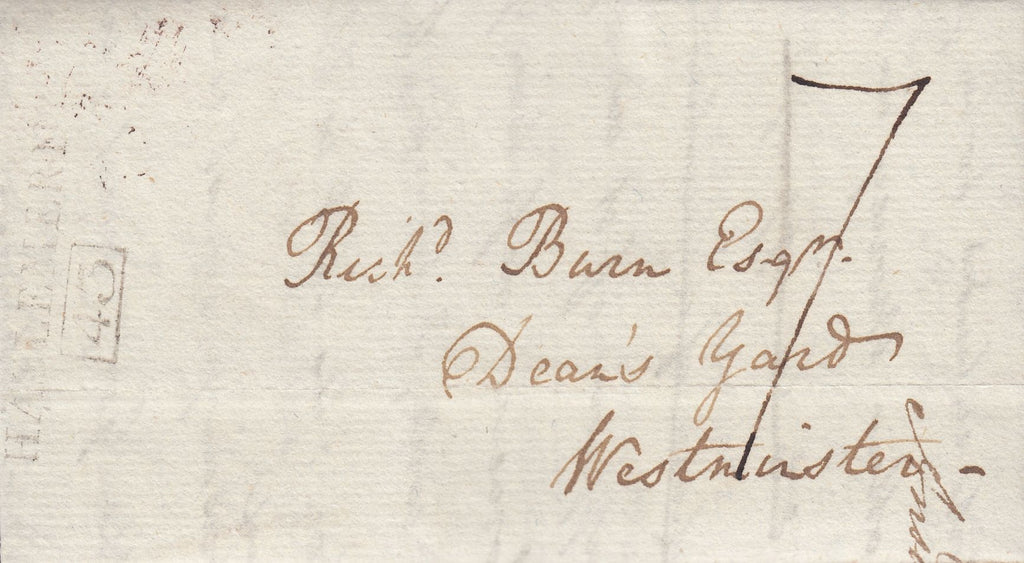 7
Rich.d Burn Esqr.
Dean's Yard
Westminster -
HASLEMERE
43